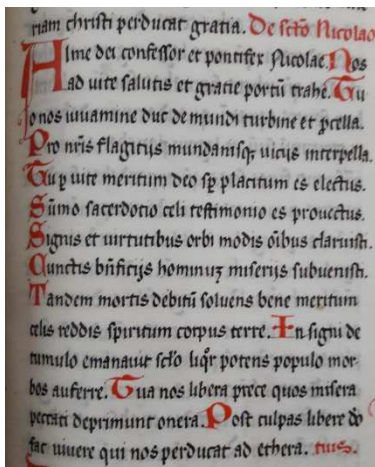 riam christi perducat gratia. De sctō Nicolao
Alme dei confessor et pontifex Nicolae. Nos
ad uite salutis et gratie portū trahe. Tu
nos iuuamine duc de mundi turbine et ꝓcella.
Pro nr̄is flagitijs mundanisqꝫ uicijs interpella.
Tu ꝑ uite meritum deo sꝑ placitum es electus.
Sūmo sacerdotio celi testimonio es prouectus.
Signis et uirtutibus orbi modis oībus claruisti.
Cunctis bn̄ficijs hominuꝫ miserijs subuenisti.
Tandem mortis debitū soluens bene meritum
celis reddis spiritum corpus terre. In signi de
tumulo emanauit sctō liqr potens populo mor
bos auferre. Tua nos libera prece quos misera
peccati deprimunt onera. Post culpas libere
fac uiuere qui nos perducat ad ethera. tuis.